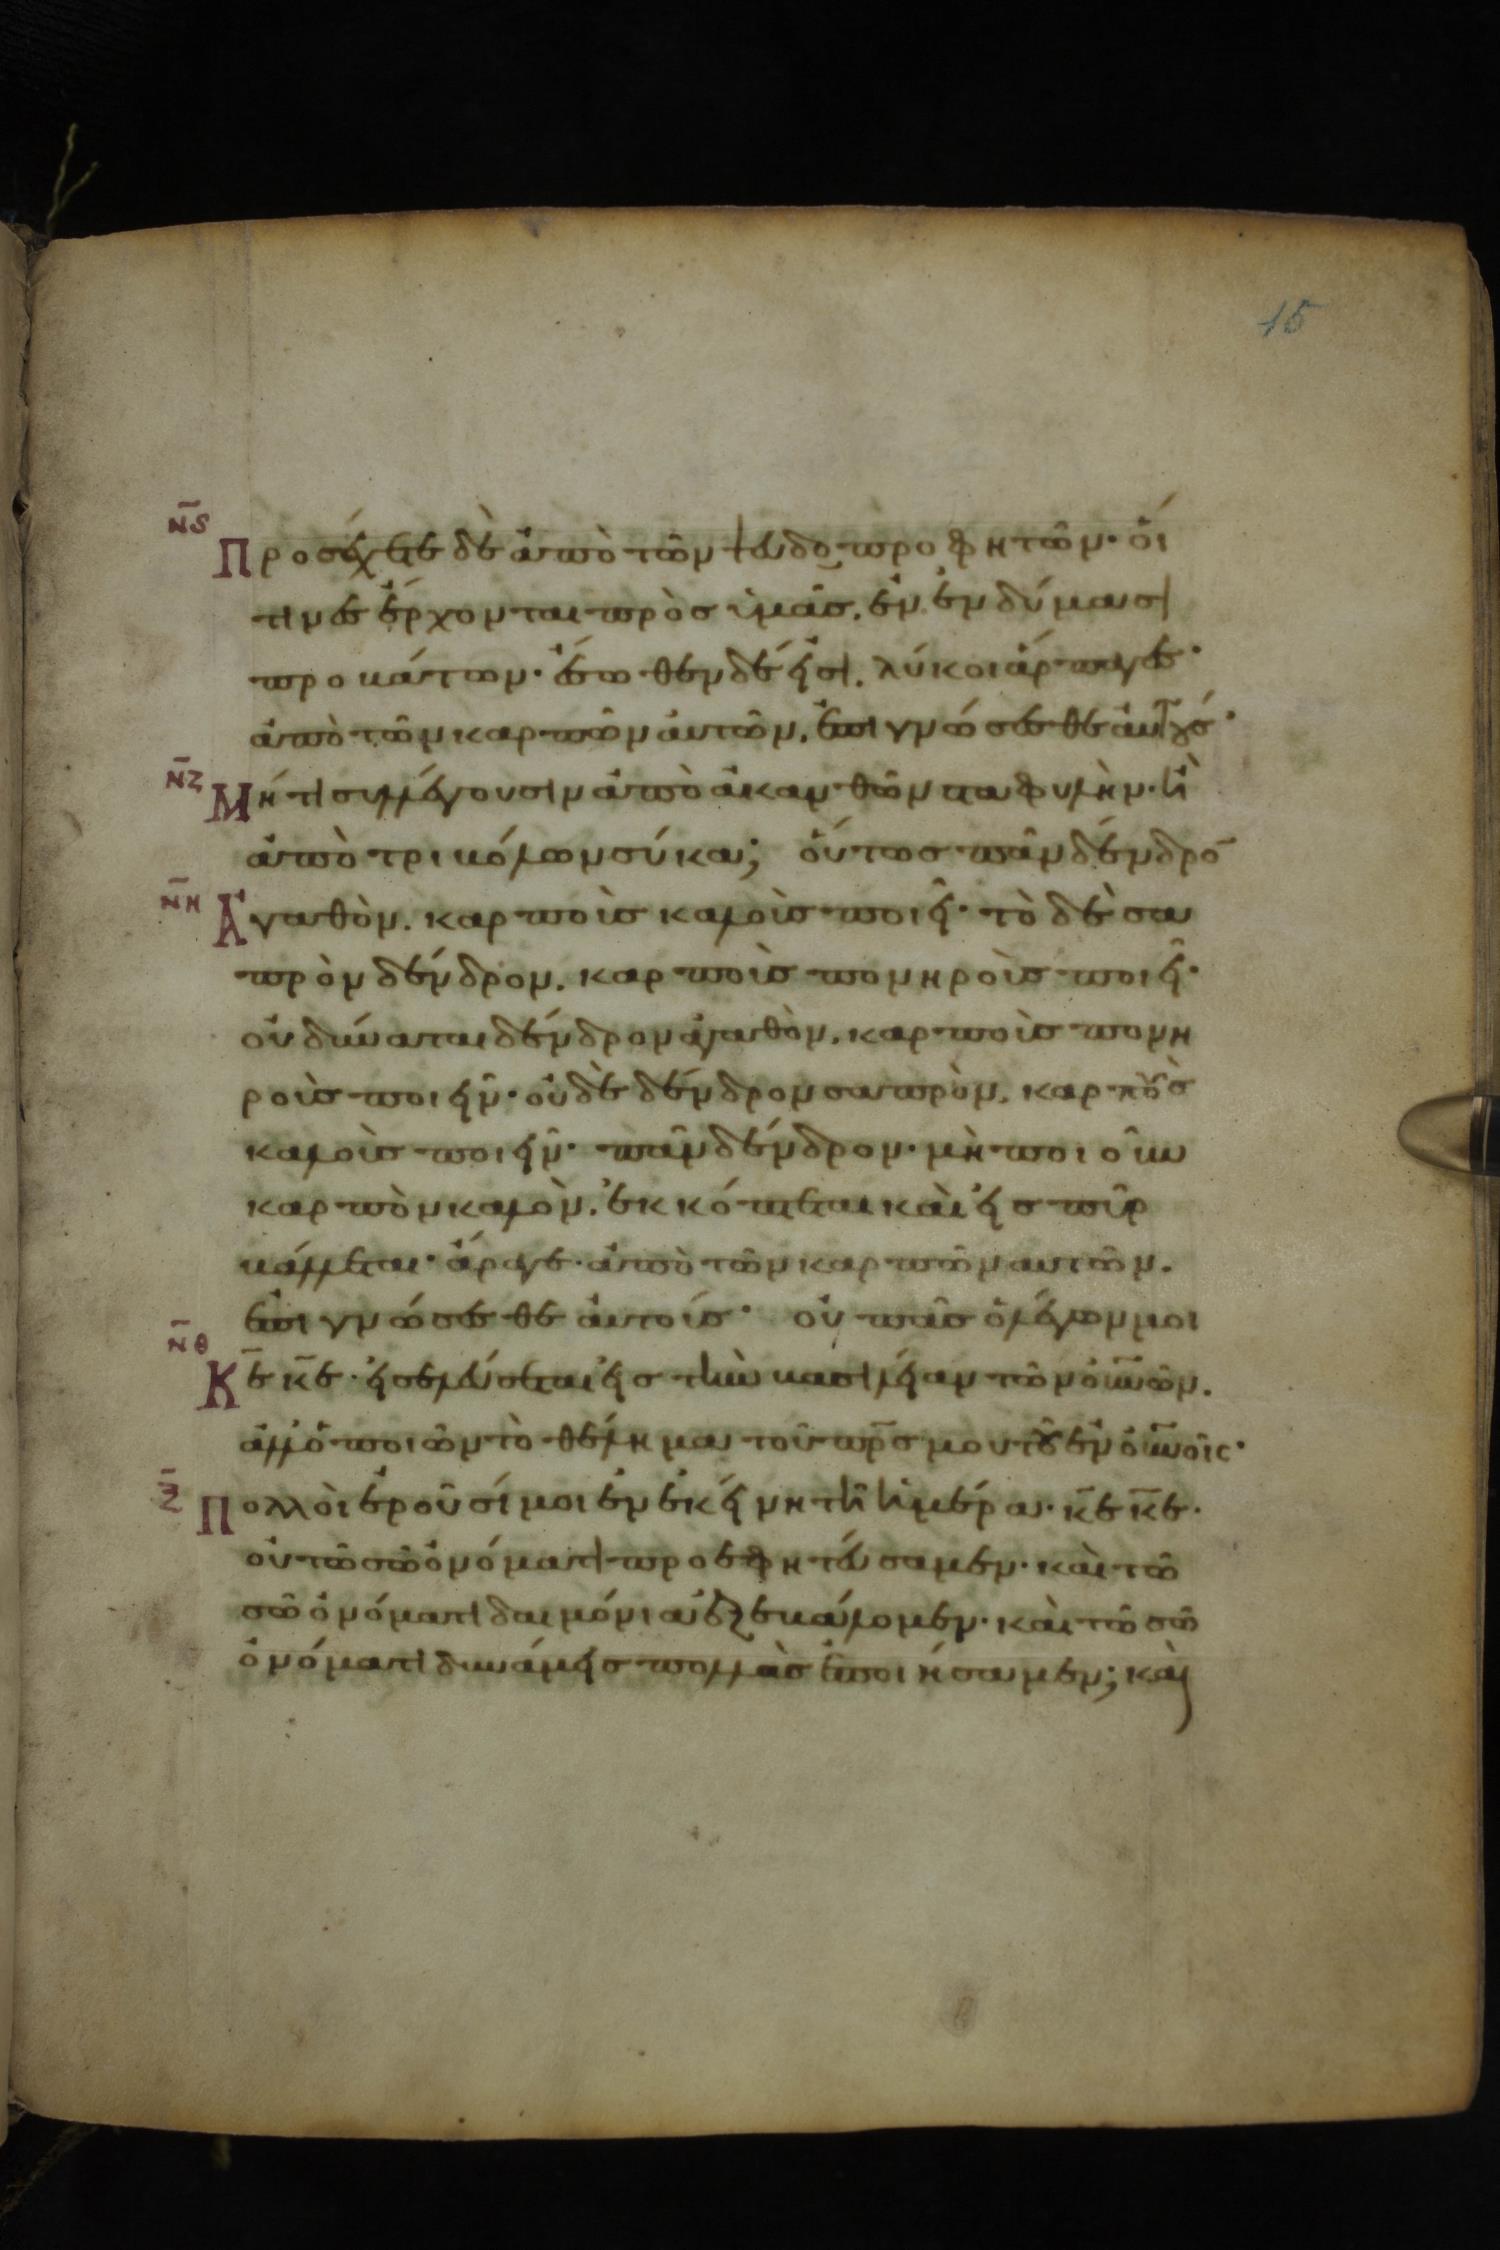 15
ν̅ϛ Προσέχετε δὲ ἀπὸ τῶν ψευδοπροφητῶν· οἵ
τινες ἔρχονται πρὸς ὑμᾶς. ἐν ἐνδύμασι
προβάτων· ἔσωθεν δέ εἰσι. λύκοι ἅρπαγες·
ἀπὸ τῶν καρπῶν αὐτῶν. ἐπιγνώσεσθε αὐτούς·
ν̅ζ Μήτι συλλέγουσιν ἀπὸ ἀκανθῶν σταφυλὴν. ἢ
ἀπὸ τριβόλων σύκα; οὕτως πᾶν δένδρο̅
ν̅η Ἀγαθὸν. καρποὺς καλοὺς ποιεῖ· τὸ δὲ σα
πρὸν δένδρον. καρποὺς πονηροὺς ποιεῖ·
οὐ δύναται δένδρον ἀγαθὸν. καρποὺς πονη
ροὺς ποιεῖν· οὐδὲ δένδρον σαπρὸν. καρποὺς
καλοὺς ποιεῖν· πᾶν δένδρον· μὴ ποιοῦν
καρπὸν καλὸν. ἐκκόπτεται καὶ εἰς πῦρ
βάλλεται· ἄραγε· ἀπὸ τῶν καρπῶν αυτῶν.
ἐπιγνώσεσθε αὐτούς· οὐ πᾶς ὁ λέγων μοι
ν̅θ Κ̅ε κ̅ε· εἰσελεύσεται εἰς τὴν βασιλείαν τῶν οὐ̅νῶν.
ἀλλ' ὁ ποιῶν τὸ θέλημα τοῦ π̅ρ̅ς μου τοῦ ἐν οὐ̅νοῖς·
ξ̅ Πολλοὶ ἐροῦσί μοι ἐν ἐκείνη τῆ ἡμέρα· κ̅ε κ̅ε·
οὐ τῶ σῶ ὀνόματι προεφητεύσαμεν· καὶ τῶ
σῶ ὀνόματι δαιμόνια ἐξεβάλομεν· καὶ τῶ σῶ
ὀνόματι δυνάμεις πολλὰς ἐποιήσαμεν; καὶ